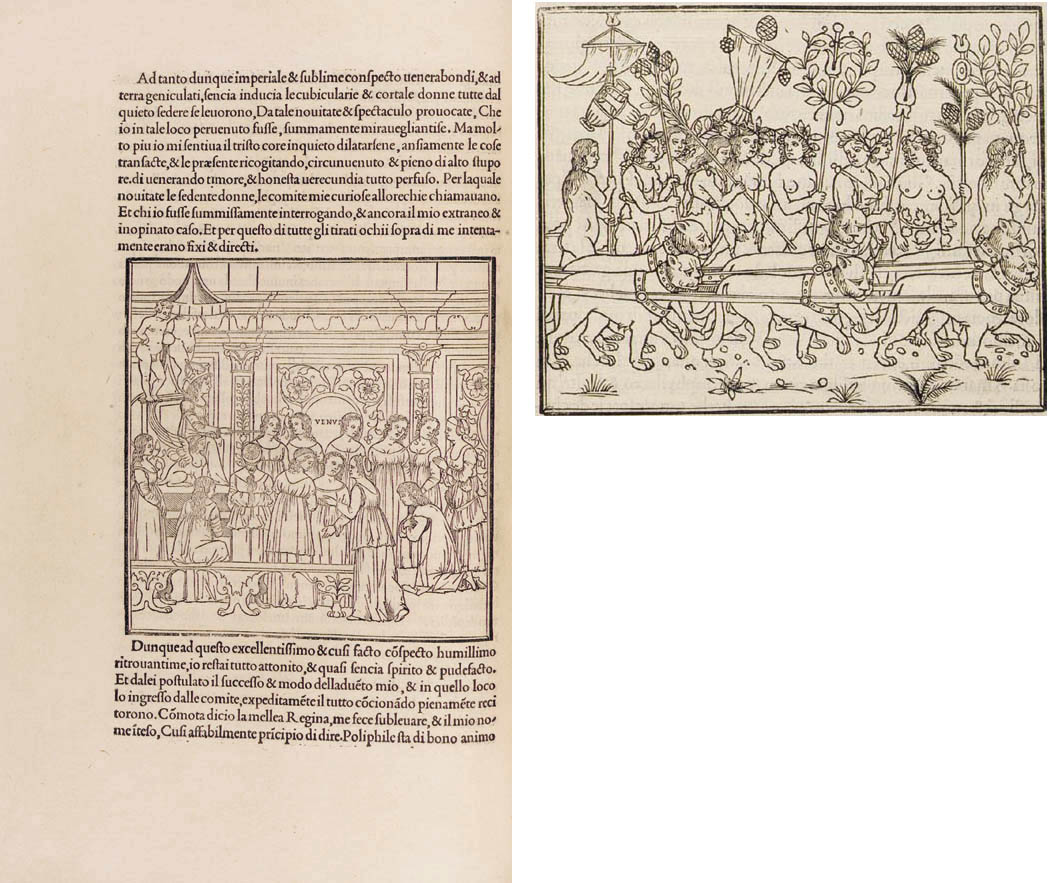 Ad tanto dunque imperiale & sublime conspecto uenerabondi, & ad
terra geniculati, sencia inducia le cubicularie & cortale donne tutte dal
quieto sedere se leuorono, Da tale nouitate & spectaculo prouocate, Che
io in tale loco peruenuto fusse, summamente mirauegliantise. Ma mol-
to piu io mi sentiua il tristo core inquieto dilatarsene, ansiamente le cose
transacte, & le præsente ricogitando, circunuenuto & pieno di alto stupo
re. di uenerando timore, & honesta uerecundia tutto perfuso. Per laquale
nouitate le sedente donne, le comite mie curiose allorechie chiamauano.
Et chi io fusse summissamente interrogando, & ancora il mio extraneo &
inopinato caso. Et per questo di tutte gli tirati ochii sopra di me intenta-
mente erano fixi & directi.
VENVS
Dunque ad questo excellentissimo & cusi facto cõspecto humillimo
ritrouantime, io restai tutto attonito, & quasi sencia spirito & pudefacto.
Et dalei postulato il successo & modo delladuẽto mio, & in quello loco
lo ingresso dalle comite, expeditamẽte il tutto cõcionãdo pienamẽte reci
torono. Cõmota dicio la mellea Regina, me fece subleuare, & il mio no-
me ĩteso, Cusi affabilmente prĩcipio di dire. Poliphile sta di bono animo